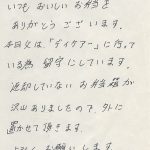 いつも おいしい お弁当を
ありがとう ございます.
本日父は、「デイケアー」に行って
いる為 留守にしています.
返却していない お弁当箱が
沢山ありましたので、外に
置かせて頂きます.
よろしく お願いします.